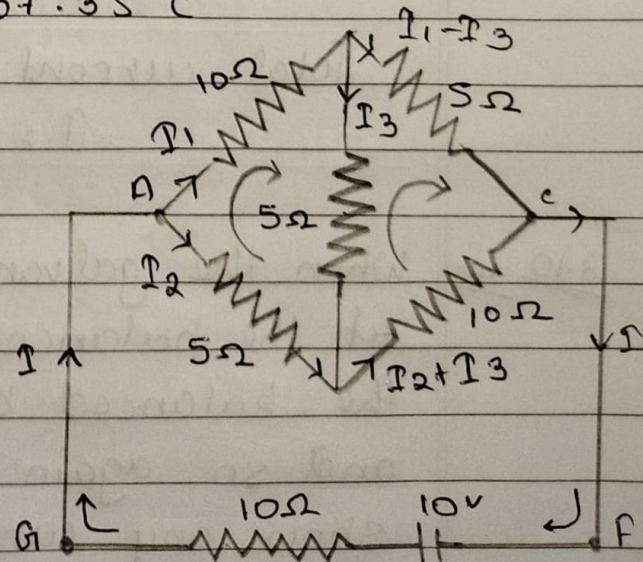 I1-I3
10Ω
5Ω
I1
I3
A
5Ω
c
I2
10Ω
5Ω
I
I
I2+I3
10Ω 10v
G
F